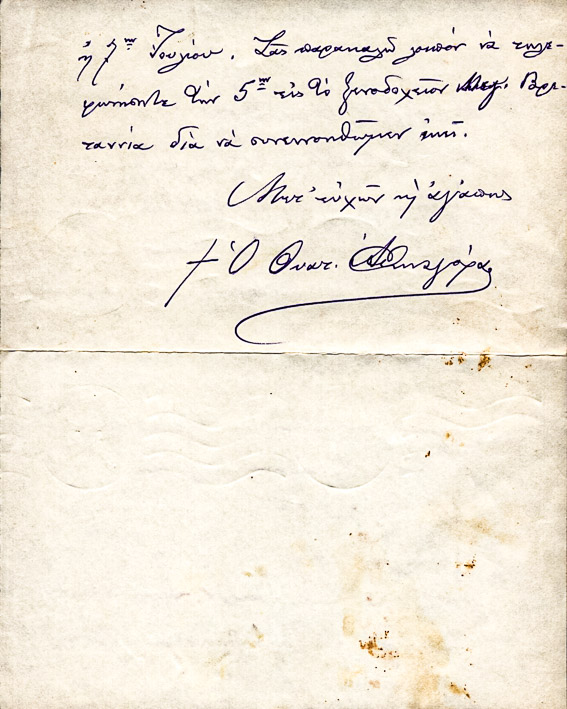 ἢ 7ην Ἰουλίου. Σᾶς παρακαλῶ λοιπὸν νὰ τηλε-
φωνήσητε τὴν 5ην εἰς τὸ ξενοδοχεῖον Μεγ. Βρε-
ταννία διὰ νὰ συνεννοηθῶμεν ἐκεῖ.
Μετ' εὐχῶν κὴ ἀγάπης
† Ὁ Θυατ. Ἀθηναγόρας